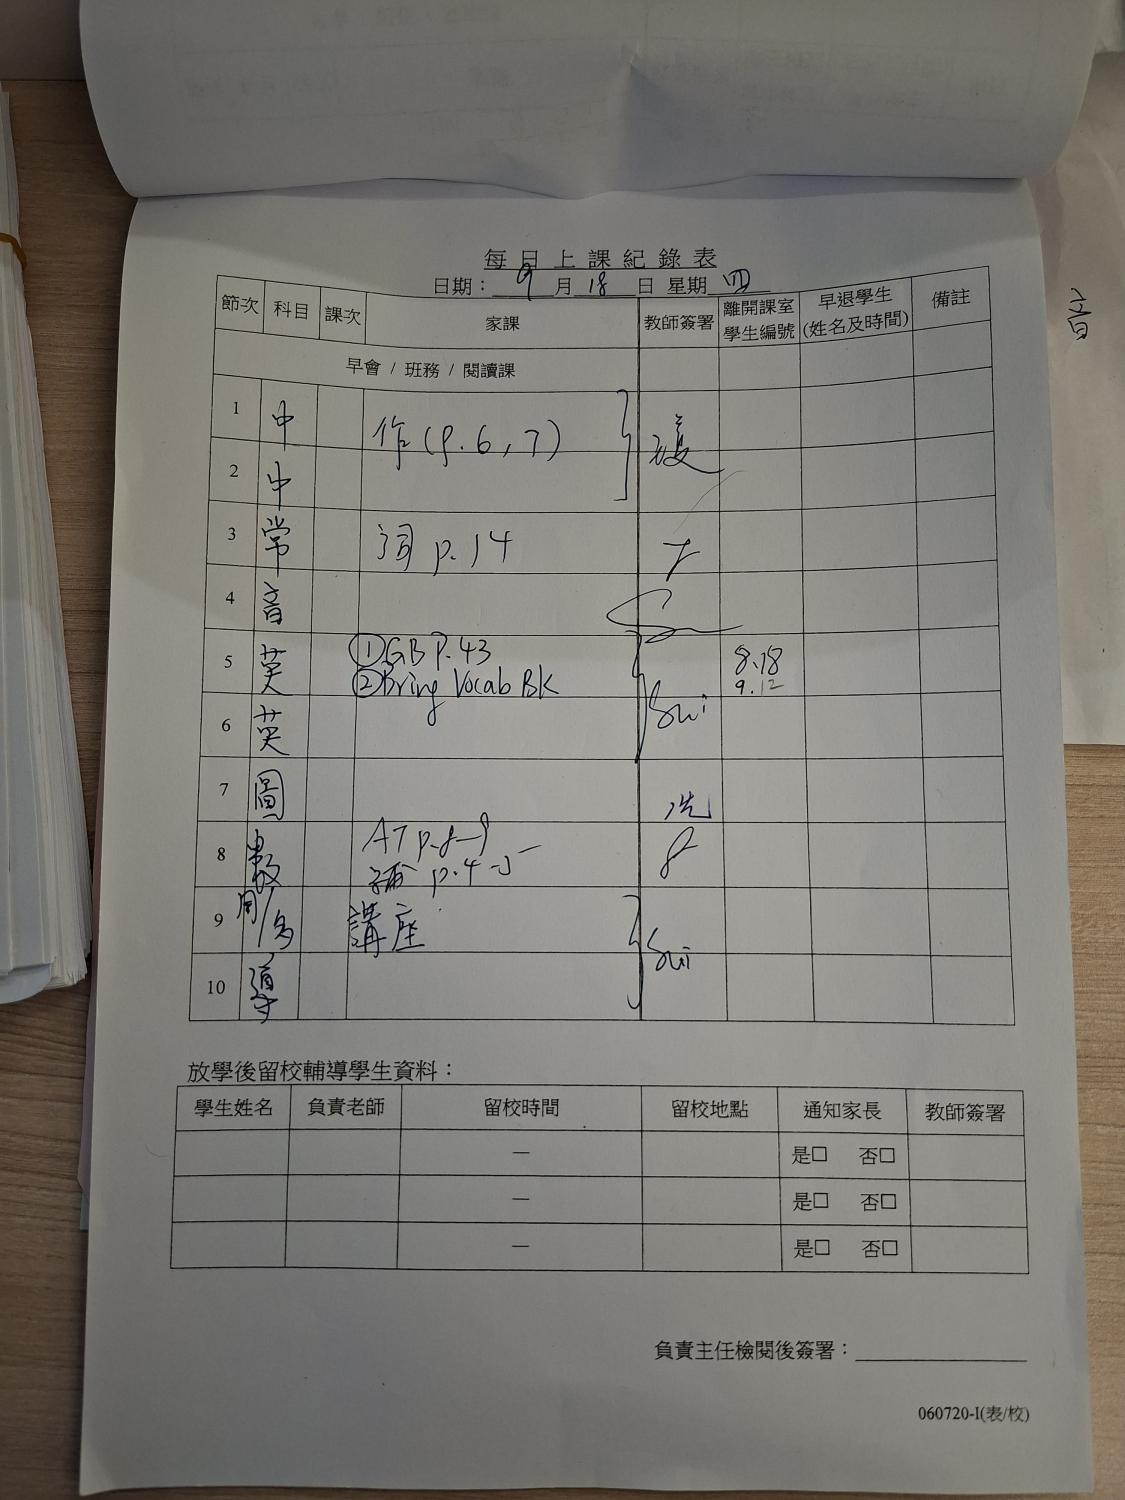 每日上課紀錄表
日期：9月18日 星期四
節次 科目 課次 家課 教師簽署 離開課室學生編號 早退學生(姓名及時間) 備註
早會 / 班務 / 閱讀課
1 中 作(p.6,7)
2 中
3 常 詞 p.14
4 音
5 英 ①GB P.43 8.18
②Bring Vocab BK 9.12
6 英 Sui
7 圖 冼
8 數 AT p.8-9
補 p.4-5
9 周/多 講座 Sui
10 導
放學後留校輔導學生資料：
學生姓名 負責老師 留校時間 留校地點 通知家長 教師簽署
— 是□ 否□
— 是□ 否□
— 是□ 否□
負責主任檢閱後簽署：
060720-I(表/校)
音